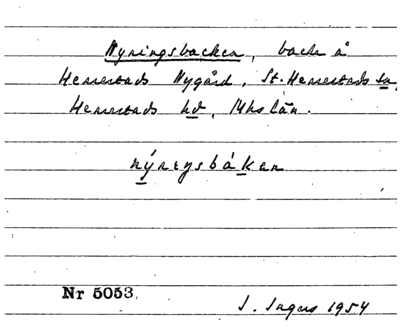 Nyringsbacken, backe å
Herrestads Nygård, St. Herrestads sn,
Herrestads hd, Mhs län.
nýreŋsbákan
Nr 5053.
J. Ingers 1954